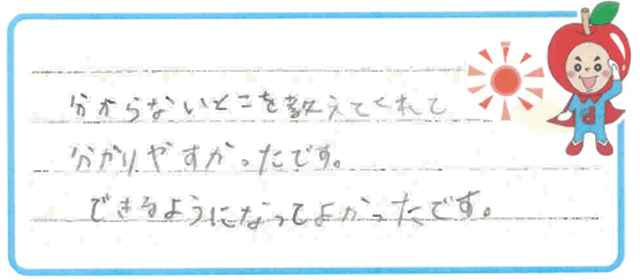 分からないとこを教えてくれて
分かりやすかったです。
できるようになってよかったです。
d